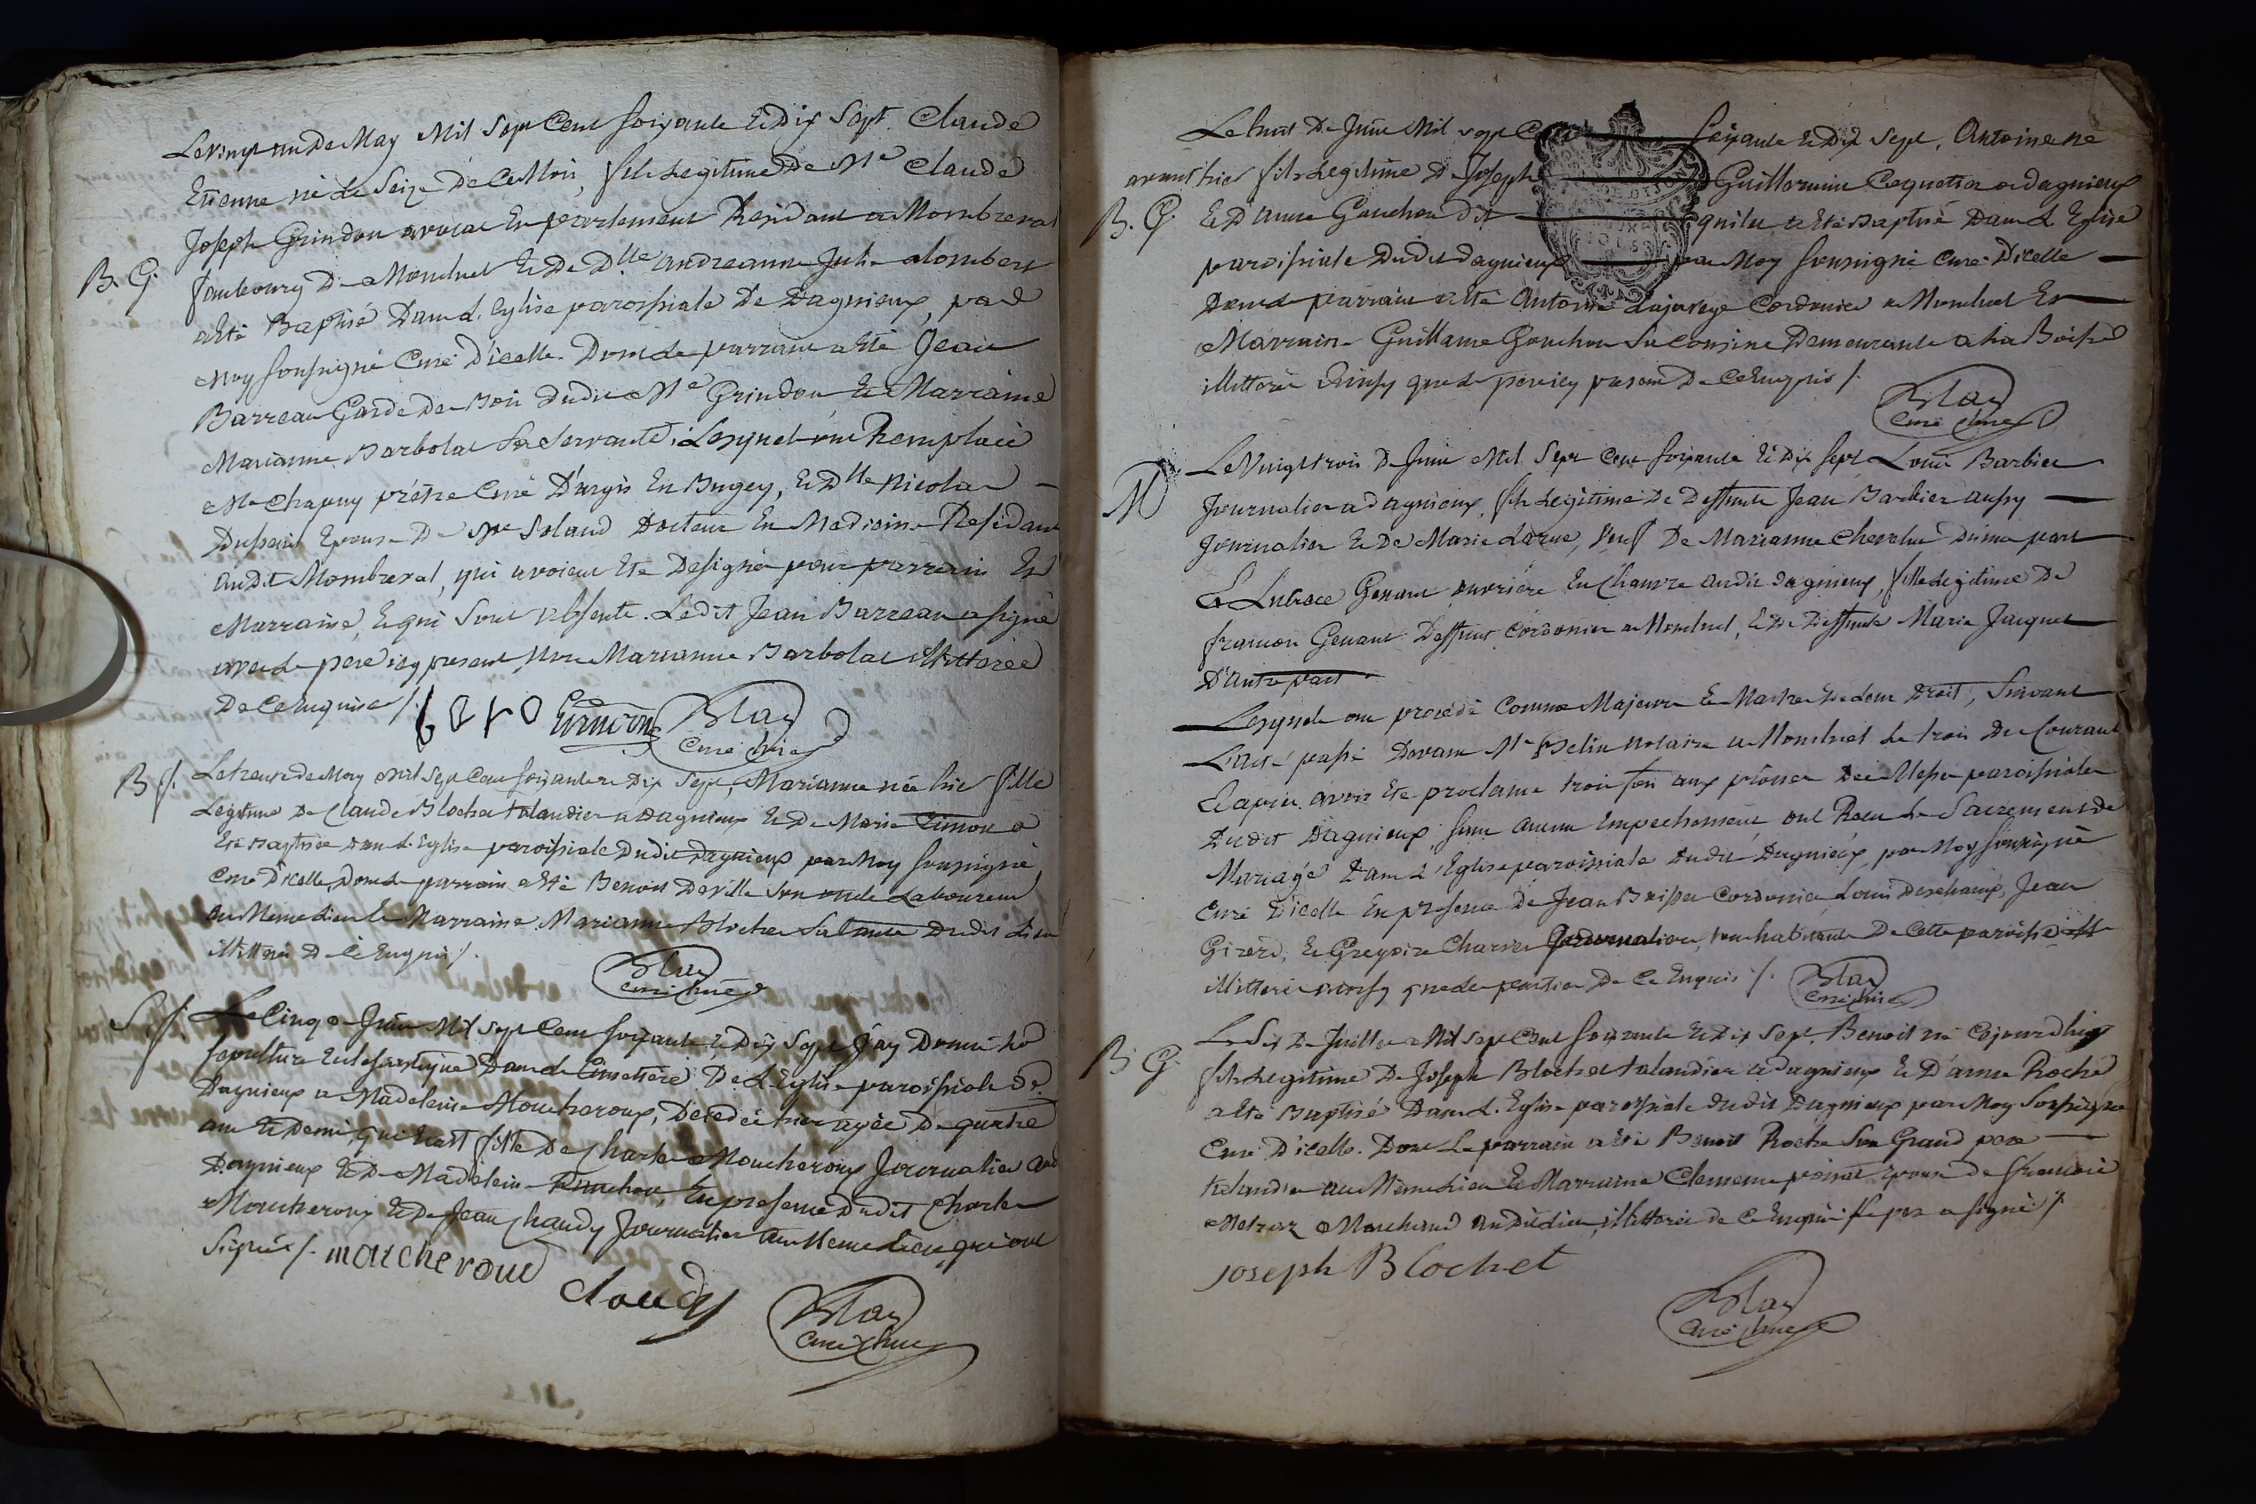 Le vingt un De May Mil Sept Cent Soixante Et Dix Sept. Claude
Etienne né le Seize De Ce Mois, fils Legitime De Me Claude
Joseph Grindon avocat En parlement Residant a Mombreval
B. G. fauboury De Montluel Et De Dlle andreanne Julie alombert
a Eté Baptisé Dans L'Eglise paroissiale De Dagnieux, par
Moy soussigné Curé D'icelle. Dont Le parrain a Eté Jean
Barreau Garde De Bois Dudit Me Grindon Et Marraine
Marianne Barbolat Sa Servante, Lesquels ont Remplacé
Me Chapuy prêtre Curé D'argis En Bugey, Et Dlle Nicolas
Epouse De Me Soland Docteur En Medicine Residant
audit Mombreval, qui avoient Eté Designés pour parrain Et
Marraine, Et qui Sont absents. Ledit Jean Barreau a signé
avec Le pere icy present, Non Marianne Barbolat illitterée
De Ce Enquise /.
Blay
Curé
B. f. Le trente De May Mil Sept Cent soixante et Dix Sept, Marianne née hier fille
Legitime De Claude Blochet talandier a Dagnieux Et De Marie Timon a
Eté Baptisée Dans L'Eglise paroissiale Dudit Dagnieux par Moy soussigné
Curé D'icelle, Dont Le parrain a Eté Benoit Deville Son oncle Laboureur
au Meme Lieu Et Marraine Marianne Blochet Sa tante Dudit Lieu
illitterés De Ce Enquis /.
Blay
Curé
S. f. Le Cinq De Juin Mil Sept Cent soixante Et Dix Sept J'ay Donné La
sepulture Ecclesiastique Dans Le Cimetiere De L'Eglise paroissiale De
Dagnieux a Madeleine Moucheroux, Décédée hier agée De quatre
ans Et Demi qui Etait fille De Charles Moucheroux Journalier au
Dagnieux Et De Madeleine En presence Dudit Charles
Moucheroux Et De Jean Chaudy Journalier Au Meme Lieu qui ont
Signés /. moucheroud
claudy
Blay
Curé
Le huit De Juin Mil sept C soixante Et Dix Sept, Antoine né
avant hier fils Legitime De Joseph Guillermin Coquetier a Dagnieux
B. G. Et D'anne Gonchon Dit a Eté Baptisé Dans L'Eglise
paroissiale Dudit Dagnieux par Moy soussigné Curé D'icelle
Dont Le parrain a Eté Antoine Cordonier a Montluel Et
Marraine Guillame Gonchon Sa Cousine Demeurante a La Boisse
illitterés Ainsy que Le pere icy present De Ce Enquis /.
Blay
Curé
M Le Vingt trois De Juin Mil Sept Cent soixante Et Dix Sept Louis Barbier
Journalier a Dagnieux, fils Legitime De Deffunt Jean Barbier aussy
Journalier Et De Marie Larue, Veuf De Marianne Chevelu D'une part
Et Genant ouvriere En Chanvre audit Dagnieux, fille Legitime De
francois Genant Deffunt Cordonier a Montluel, Et De Deffunte Marie Jacquet
D'autre part.
Lesquels ont procédé Comme Majeurs Et Maitres De Leur Droit, Suivant
L'acte passé Devant Me Belin Notaire a Montluel Le trois Du Courant
Et apres avoir Eté proclamé trois fois aux prônes Des Messes paroissiales
Dudit Dagnieux, sans aucun Empechement, ont Recu Le Sacrement De
Mariage Dans L'Eglise paroissiale Dudit Dagnieux, par Moy soussigné
Curé D'icelle En presence De Jean Cordonier, Louis Deschamps, Jean
Girerd, Et Gregoire Charvet Journalier, tous habitants De Cette paroisse
illitterés Aussy que Les parties De Ce Enquis /.
Blay
Curé
B. G. Le Six De Juillet Mil Sept Cent soixante Et Dix Sept, Benoit né Cejourdhuy
fils Legitime De Joseph Blochet talandier a Dagnieux Et D'anne Roche
a Eté Baptisé Dans L'Eglise paroissiale Dudit Dagnieux par Moy soussigné
Curé D'icelle. Dont Le parrain a Eté Benoit Roche Son Grand pere
talandier au Meme Lieu Et Marraine Clemence epouse De francois
Marchand audit Lieu, illitterés De Ce Enquis Le pere a signé /.
Joseph Blochet
Blay
Curé